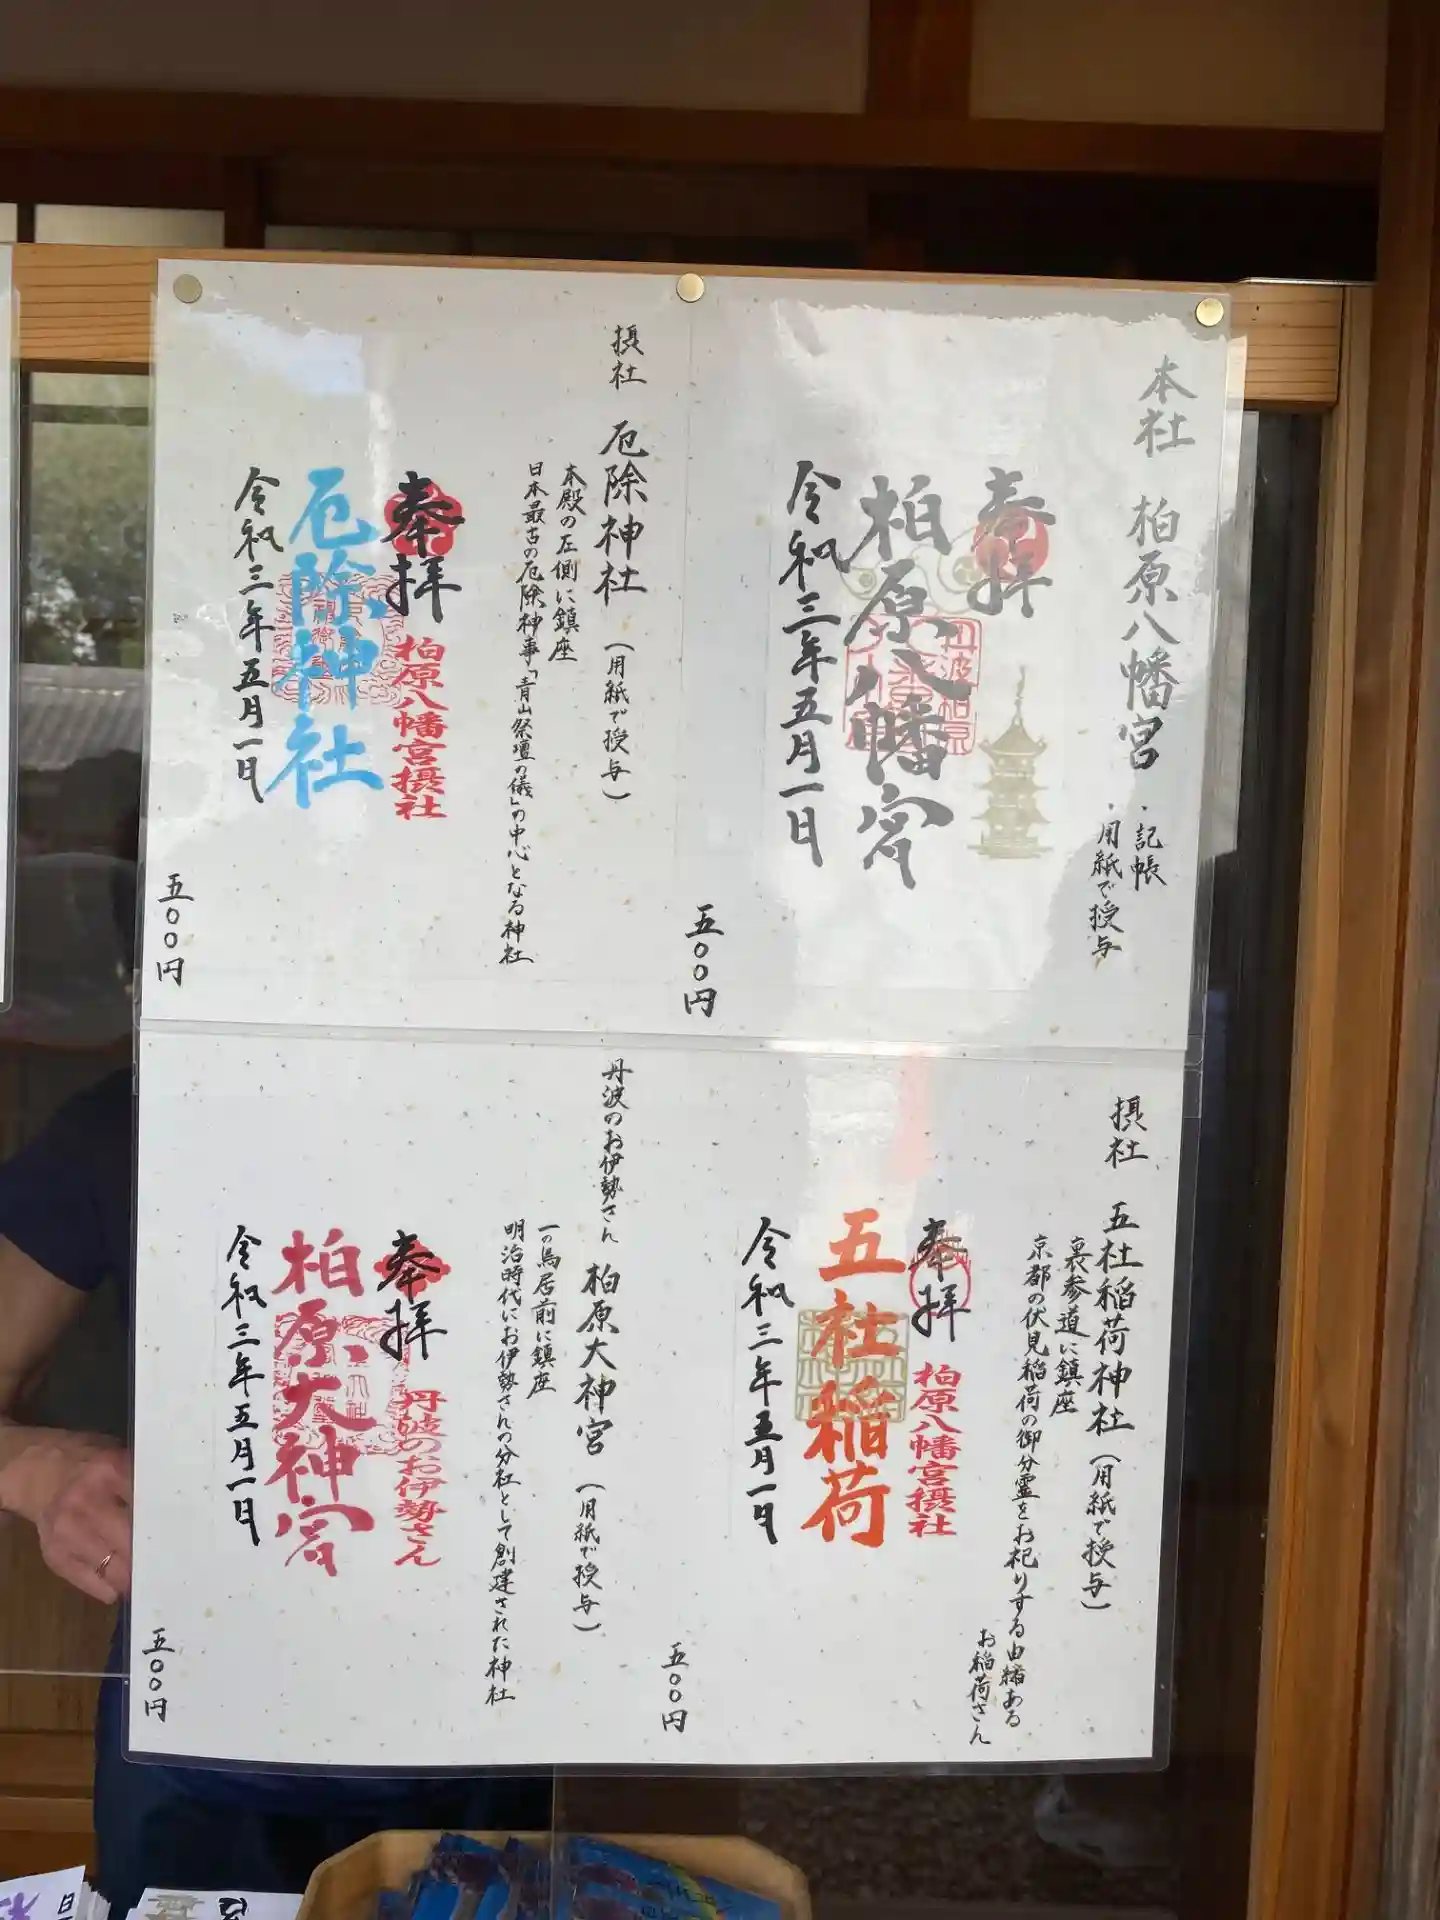 本社 柏原八幡宮
・記帳
・用紙で授与
奉拝
柏原八幡宮
令和三年五月一日
五〇〇円
摂社 厄除神社 (用紙で授与)
本殿の左側に鎮座
日本最古の厄除神事「青山祭壇の儀」の中心となる神社
奉拝
柏原八幡宮摂社
厄除神社
令和三年五月一日
五〇〇円
摂社 五社稲荷神社 (用紙で授与)
裏参道に鎮座
京都の伏見稲荷の御分霊をお祀りする由緒ある
お稲荷さん
奉拝
柏原八幡宮摂社
五社稲荷
令和三年五月一日
五〇〇円
丹波のお伊勢さん 柏原大神宮 (用紙で授与)
一の鳥居前に鎮座
明治時代にお伊勢さんの分社として創建された神社
奉拝
丹波のお伊勢さん
柏原大神宮
令和三年五月一日
五〇〇円